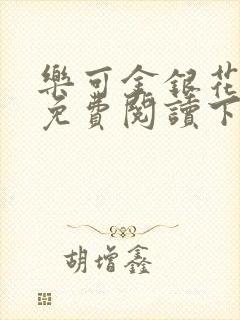 樂可金銀花
免費閱讀下
胡增鑫